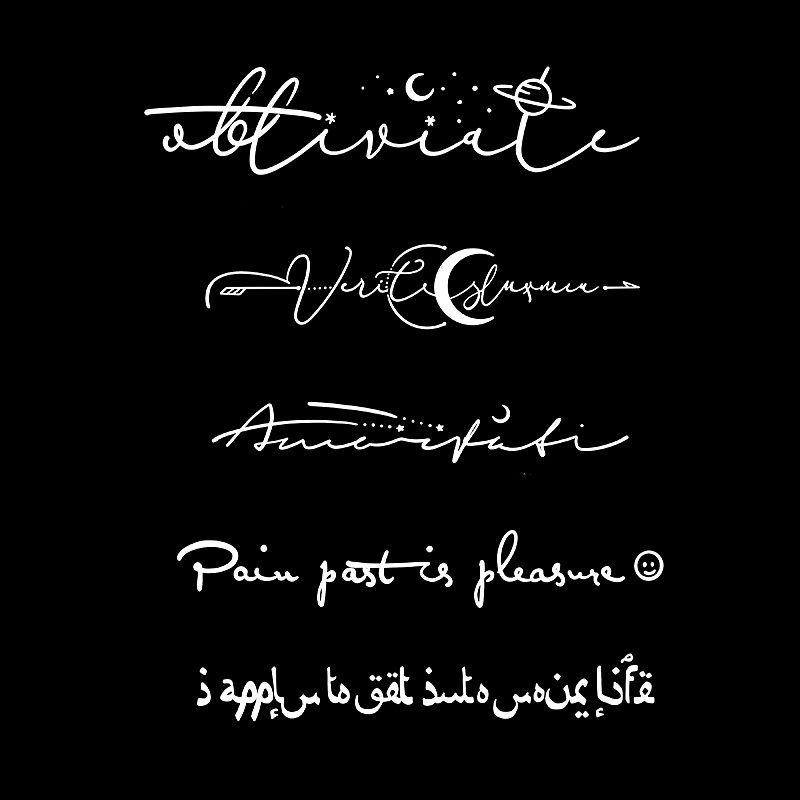 obliviate
Veritas lux mea
Amor fati
Pain past is pleasure